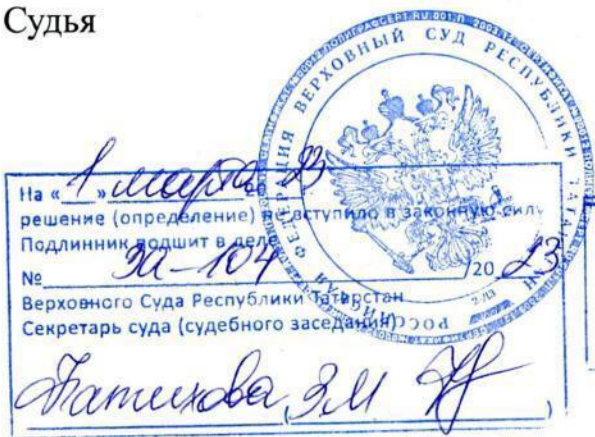 Судья
ВЕРХОВНЫЙ СУД РЕСПУБЛИКИ ТАТАРСТАН
РОССИЙСКАЯ ФЕДЕРАЦИЯ
На «1» марта 20 23
решение (определение) не вступило в законную силу
Подлинник подшит в деле
№ 3а-104 /20 23
Верховного Суда Республики Татарстан
Секретарь суда (судебного заседания)
З.М